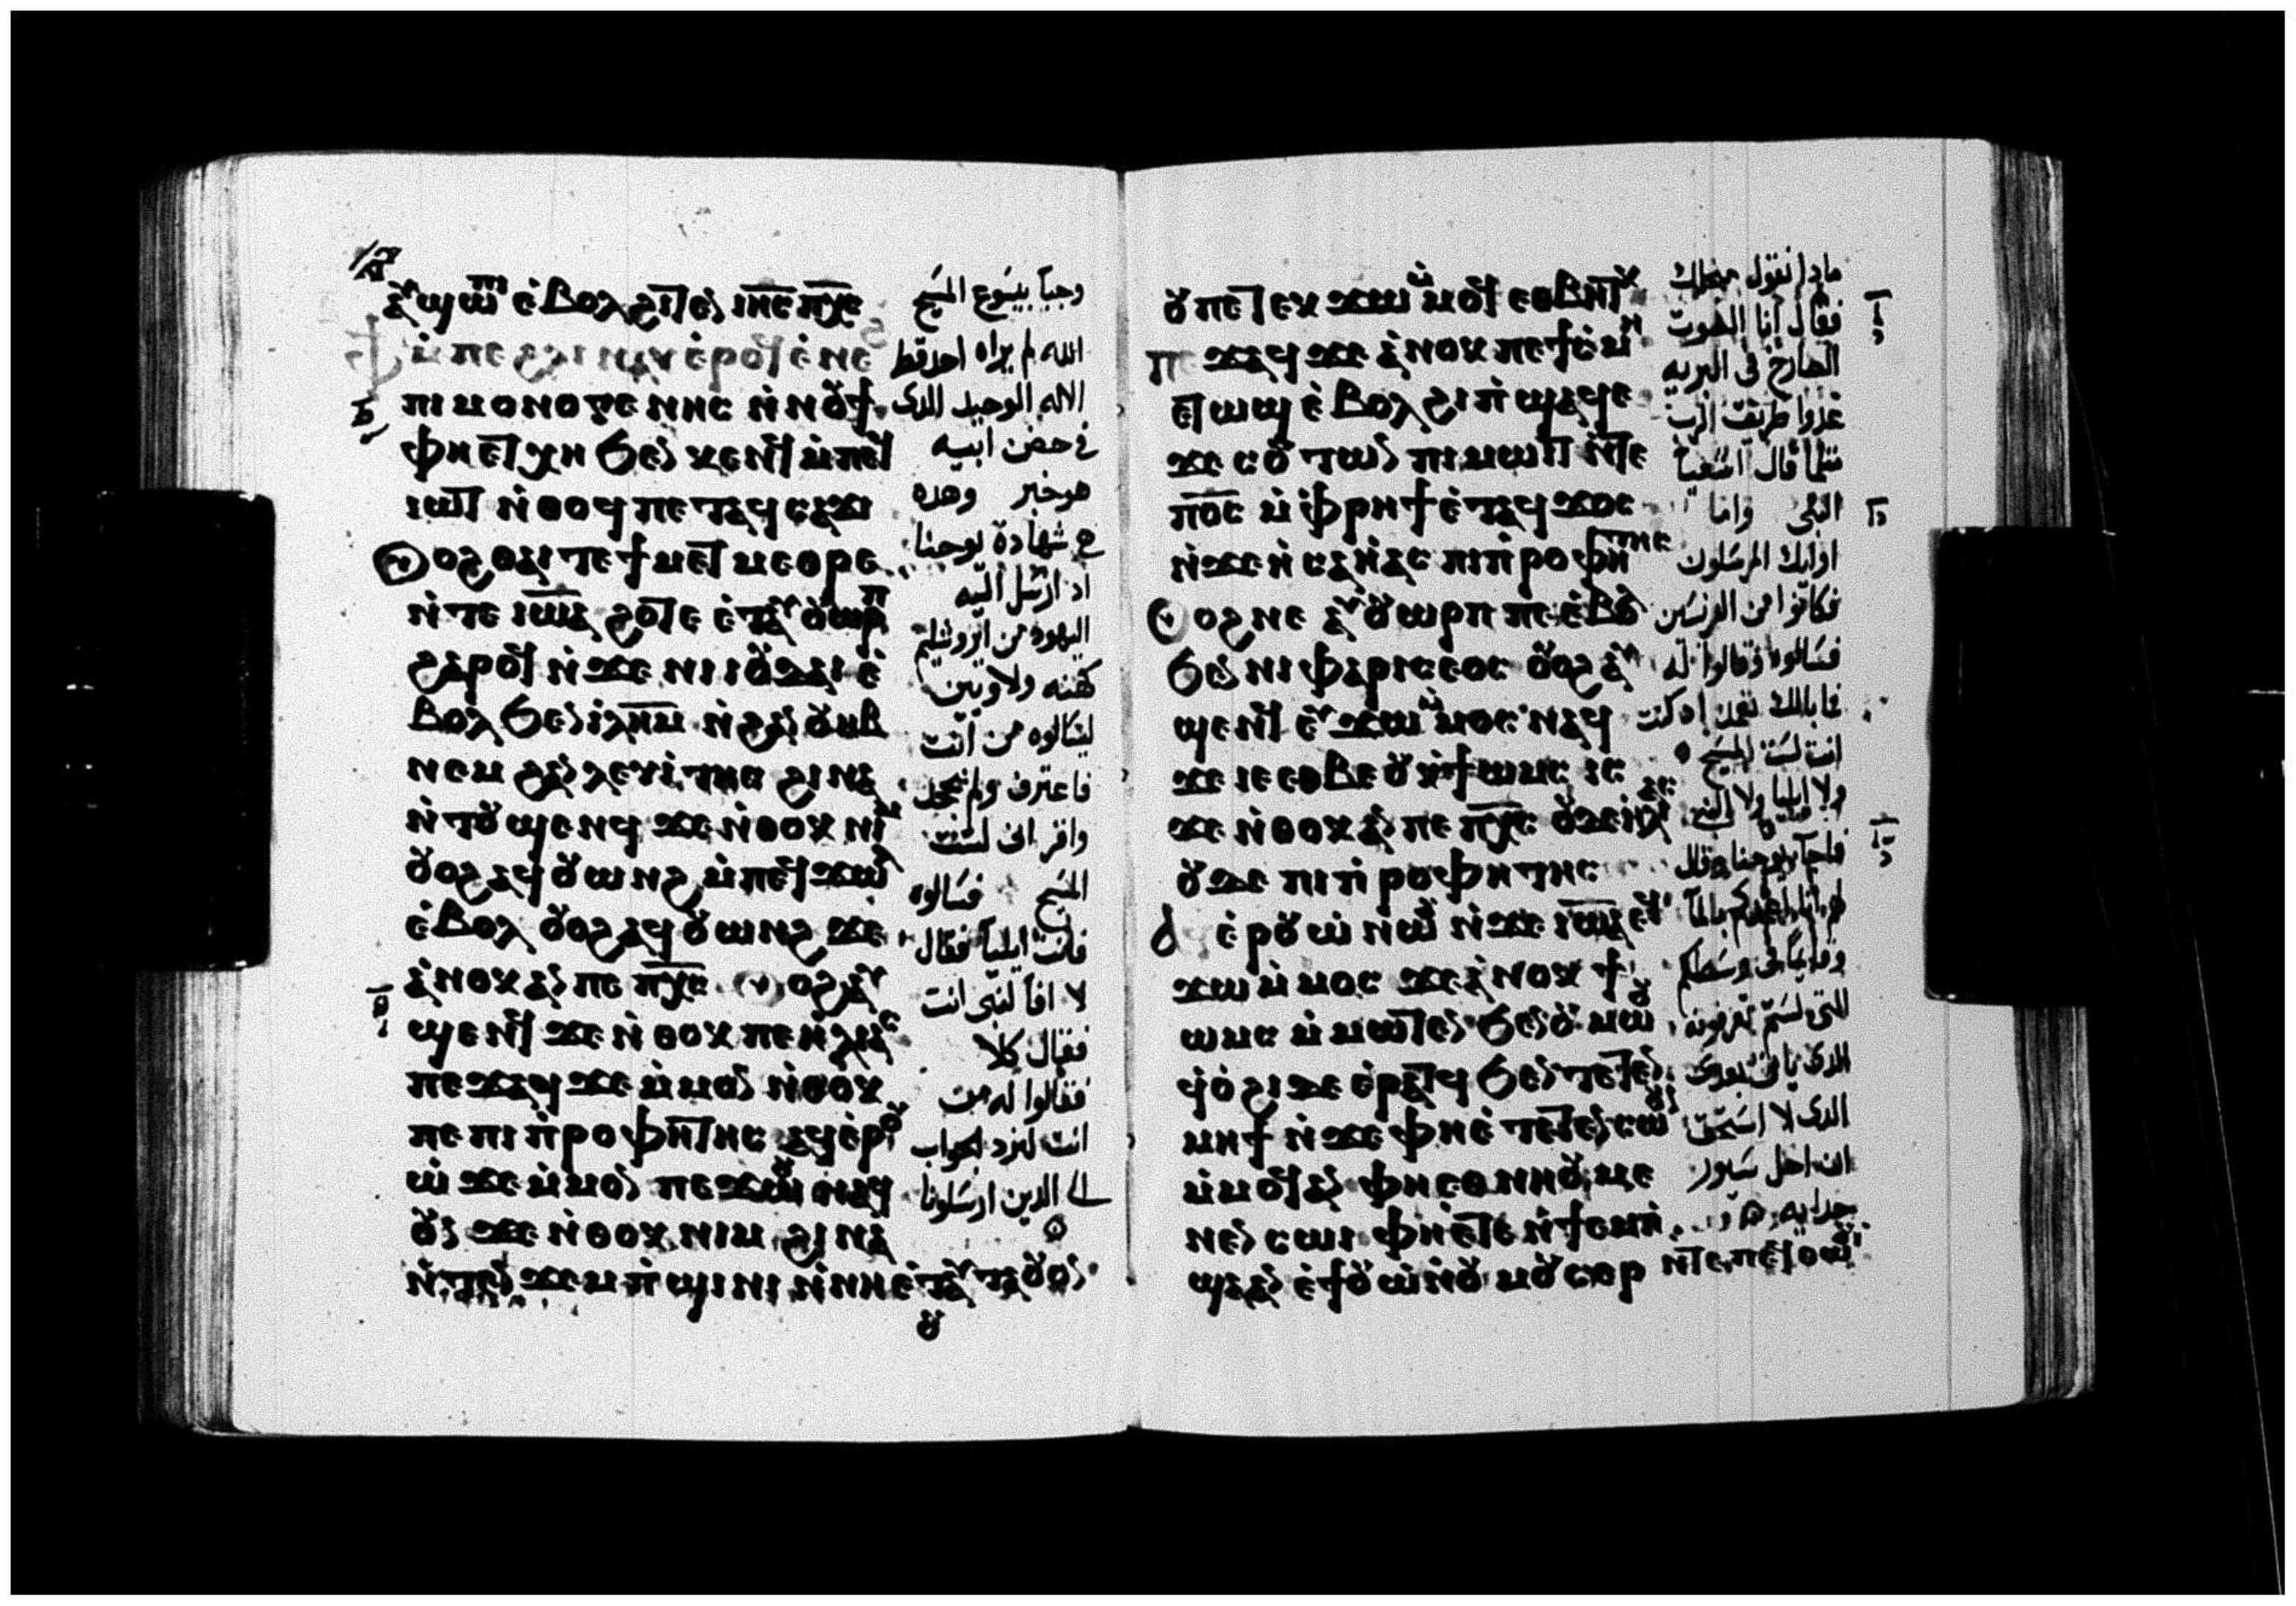 ⲁⲩϣⲱⲡⲓ ⲉ̀ⲃⲟⲗ ϩⲓⲧⲉⲛ ⲓⲏⲥ ⲡⲭⲥ
ⲫϯ ⲙ̀ⲡⲉ ϩⲗⲓ ⲛⲁⲩ ⲉ̀ⲣⲟϥ ⲉ̀ⲛⲉ
ⲡⲓⲙⲟⲛⲟⲅⲉⲛⲏⲥ ⲛ̀ⲛⲟⲩϯ
ⲫⲏⲉⲧⲭⲏ ϧⲉⲛ ⲕⲉⲛϥ ⲙ̀ⲡⲉϥ
ⲓⲱⲧ ⲛ̀ⲑⲟϥ ⲡⲉⲧⲁϥⲥⲁϫⲓ
ⲟⲩⲟϩ ⲑⲁⲓ ⲧⲉ ϯⲙⲉⲧⲙⲉⲑⲣⲉ
ⲛ̀ⲧⲉ ⲓⲱⲁ ϩⲟⲧⲉ ⲉ̀ⲧⲁⲩⲟⲩⲱⲣⲡ
ϩⲁⲣⲟϥ ⲛ̀ϫⲉ ⲛⲓⲓⲟⲩⲇⲁⲓ ⲉ̀
ⲃⲟⲗ ϧⲉⲛ ⲓ̀ⲗⲏⲙ ⲛ̀ϩⲁⲛⲟⲩⲏⲃ
ⲛⲉⲙ ϩⲁⲛⲗⲉⲩⲓ̀ⲧⲏⲥ ϩⲓⲛⲁ
ⲛ̀ⲧⲟⲩϣⲉⲛϥ ϫⲉ ⲛ̀ⲑⲟⲕ ⲛⲓⲙ
ⲟⲩⲟϩ ⲁϥⲟⲩⲱⲛϩ ⲙ̀ⲡⲉϥϫⲱⲗ
ⲉ̀ⲃⲟⲗ ⲟⲩⲟϩ ⲁϥⲟⲩⲱⲛϩ ϫⲉ
ⲁ̀ⲛⲟⲕ ⲁⲛ ⲡⲉ ⲡⲭⲥ ⲟⲩⲟϩ ⲁⲩ
ϣⲉⲛϥ ϫⲉ ⲛ̀ⲑⲟⲕ ⲡⲉ ⲏⲗⲓⲁⲥ
ⲡⲉϫⲁϥ ϫⲉ ⲙ̀ⲙⲟⲛ ⲛ̀ⲑⲟⲕ
ⲡⲉ ⲡⲓⲡ̀ⲣⲟⲫⲏⲧⲏⲥ ⲁϥⲉ̀ⲣⲟⲩ
ⲱ̀ ϫⲉ ⲙ̀ⲙⲟⲛ ⲡⲉϫⲱⲟⲩ ⲛⲁϥ
ⲟⲩⲛ ϫⲉ ⲛ̀ⲑⲟⲕ ⲛⲓⲙ ϩⲓⲛⲁ
ⲛ̀ⲧⲉⲛ ϫⲉⲙⲡ̀ϣⲓⲛⲓ ⲛ̀ⲛⲏⲉ̀ⲧⲁⲩⲧⲁⲟⲩⲟⲛ
وحبآ بيسوع المسيح
الله لم يراه احد قط
الاله الوحيد الدى
فى حضن ابيه
هو خبر وهده
هى شهادة يوحنا
اد ارسل اليه
اليهود من ايروشليم
كهنه ولاويين
ليسالوه من انت
فاعترف ولم يجحد
واقر انى لست
المسيح فسالوه
فانت ايليآ فقال
لا افآ لنبى انت
فقال كلا
فقالوا له من
انت لنرد الجواب
الى الدين ارسلونا
ⲟⲩ ⲡⲉⲧⲉⲕϫⲱ ⲙ̀ⲙⲟϥ ⲉⲑⲃⲏⲧⲕ
ⲡⲉϫⲁϥ ϫⲉ ⲁ̀ⲛⲟⲕ ⲡⲉ ϯⲥ̀ⲙⲏ
ⲉⲧⲱϣ ⲉ̀ⲃⲟⲗ ϩⲓ ⲡ̀ϣⲁϥⲉ
ϫⲉ ⲥⲟⲩⲧⲱⲛ ⲡⲓⲙⲱⲓⲧ ⲛ̀ⲧⲉ
ⲡⲟⲥ ⲙ̀ⲫ̀ⲣⲏϯ ⲉ̀ⲧⲁϥϫⲟⲥ
ⲛ̀ϫⲉ ⲏ̀ⲥⲁⲏ̀ⲁⲥ ⲡⲓⲡ̀ⲣⲟⲫⲏⲧⲏⲥ
ⲟⲩⲟϩ ⲛⲉ ⲁⲩⲟⲩⲱⲣⲡ ⲡⲉ ⲉ̀ⲃⲟⲗ
ϧⲉⲛ ⲛⲓⲫⲁⲣⲓⲥⲉⲟⲥ ⲟⲩⲟϩ ⲁⲩ
ϣⲉⲛϥ ⲉⲩϫⲱ ⲙ̀ⲙⲟⲥ ⲛⲁϥ
ϫⲉ ⲓⲉ ⲉⲑⲃⲉ ⲟⲩ ⲕ̀ϯⲱⲙⲥ ⲓⲥ
ϫⲉ ⲛ̀ⲑⲟⲕ ⲁⲛ ⲡⲉ ⲡⲭⲥ ⲟⲩⲇⲉ ⲏ̀ⲗⲓⲁⲥ
ⲟⲩⲇⲉ ⲡⲓⲡ̀ⲣⲟⲫⲏⲧⲏⲥ
ⲁϥⲉ̀ⲣⲟⲩⲱ̀ ⲛⲱⲟⲩ ⲛ̀ϫⲉ ⲓⲱⲁ ⲉϥ
ϫⲱ ⲙ̀ⲙⲟⲥ ϫⲉ ⲁ̀ⲛⲟⲕ ϯ
ⲱⲙⲥ ⲙ̀ⲙⲱⲧⲉⲛ ϧⲉⲛ ⲟⲩⲙⲱⲟⲩ
ϥⲟ̀ϩⲓ ⲇⲉ ⲉ̀ⲣⲁⲧϥ ϧⲉⲛ ⲧⲉⲧⲉⲛ
ⲙⲏϯ ⲛ̀ϫⲉ ⲫⲏⲉ̀ⲧⲉⲧⲉⲛⲥⲱⲟⲩⲛ
ⲙ̀ⲙⲟϥ ⲁⲛ ⲫⲏⲉⲑⲛⲏⲟⲩ ⲙⲉ
ⲛⲉⲛⲥⲱⲓ ⲫⲏⲉ̀ⲧⲉ ⲛ̀ϯⲉⲙⲡ̀
ϣⲁ ⲁⲛ ⲉ̀ϯⲟⲩⲱ̀ ⲛ̀ⲟⲩⲙⲟⲩⲥⲉⲣ ⲛ̀ⲧⲉ ⲡⲉϥⲑⲱⲟⲩⲓ
مادا تقول
فقال انا الصوت
الصارخ فى البريه
طريق الرب
مثلما قال اشعيا
النبى واما
اوليك المرسلون
فكانوا من الفرنسين
فسالوه وقالوا له
فما بالك تعمد اد كنت
انت لست المسيح
ولا ايليا ولا النبى
فاجآب يوحنا وقال
لهم انا اعمدكم بالمآ
وقايمآ فى وسطكم
لستم تعرفونه
الدى ياتى بعدى
الدى لا استحق
ان احل سيور
حدايه